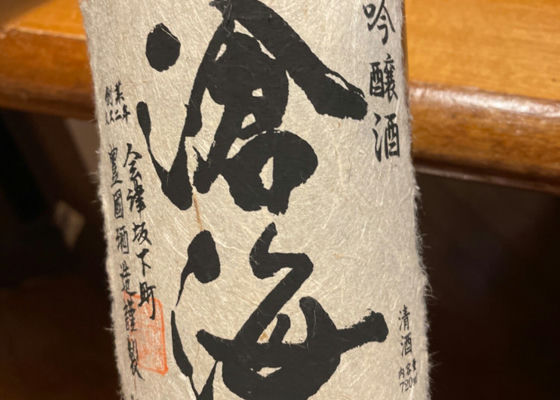 吟醸酒
滄海
会津坂下町
豊國酒造謹製
清酒
内容量
720ml